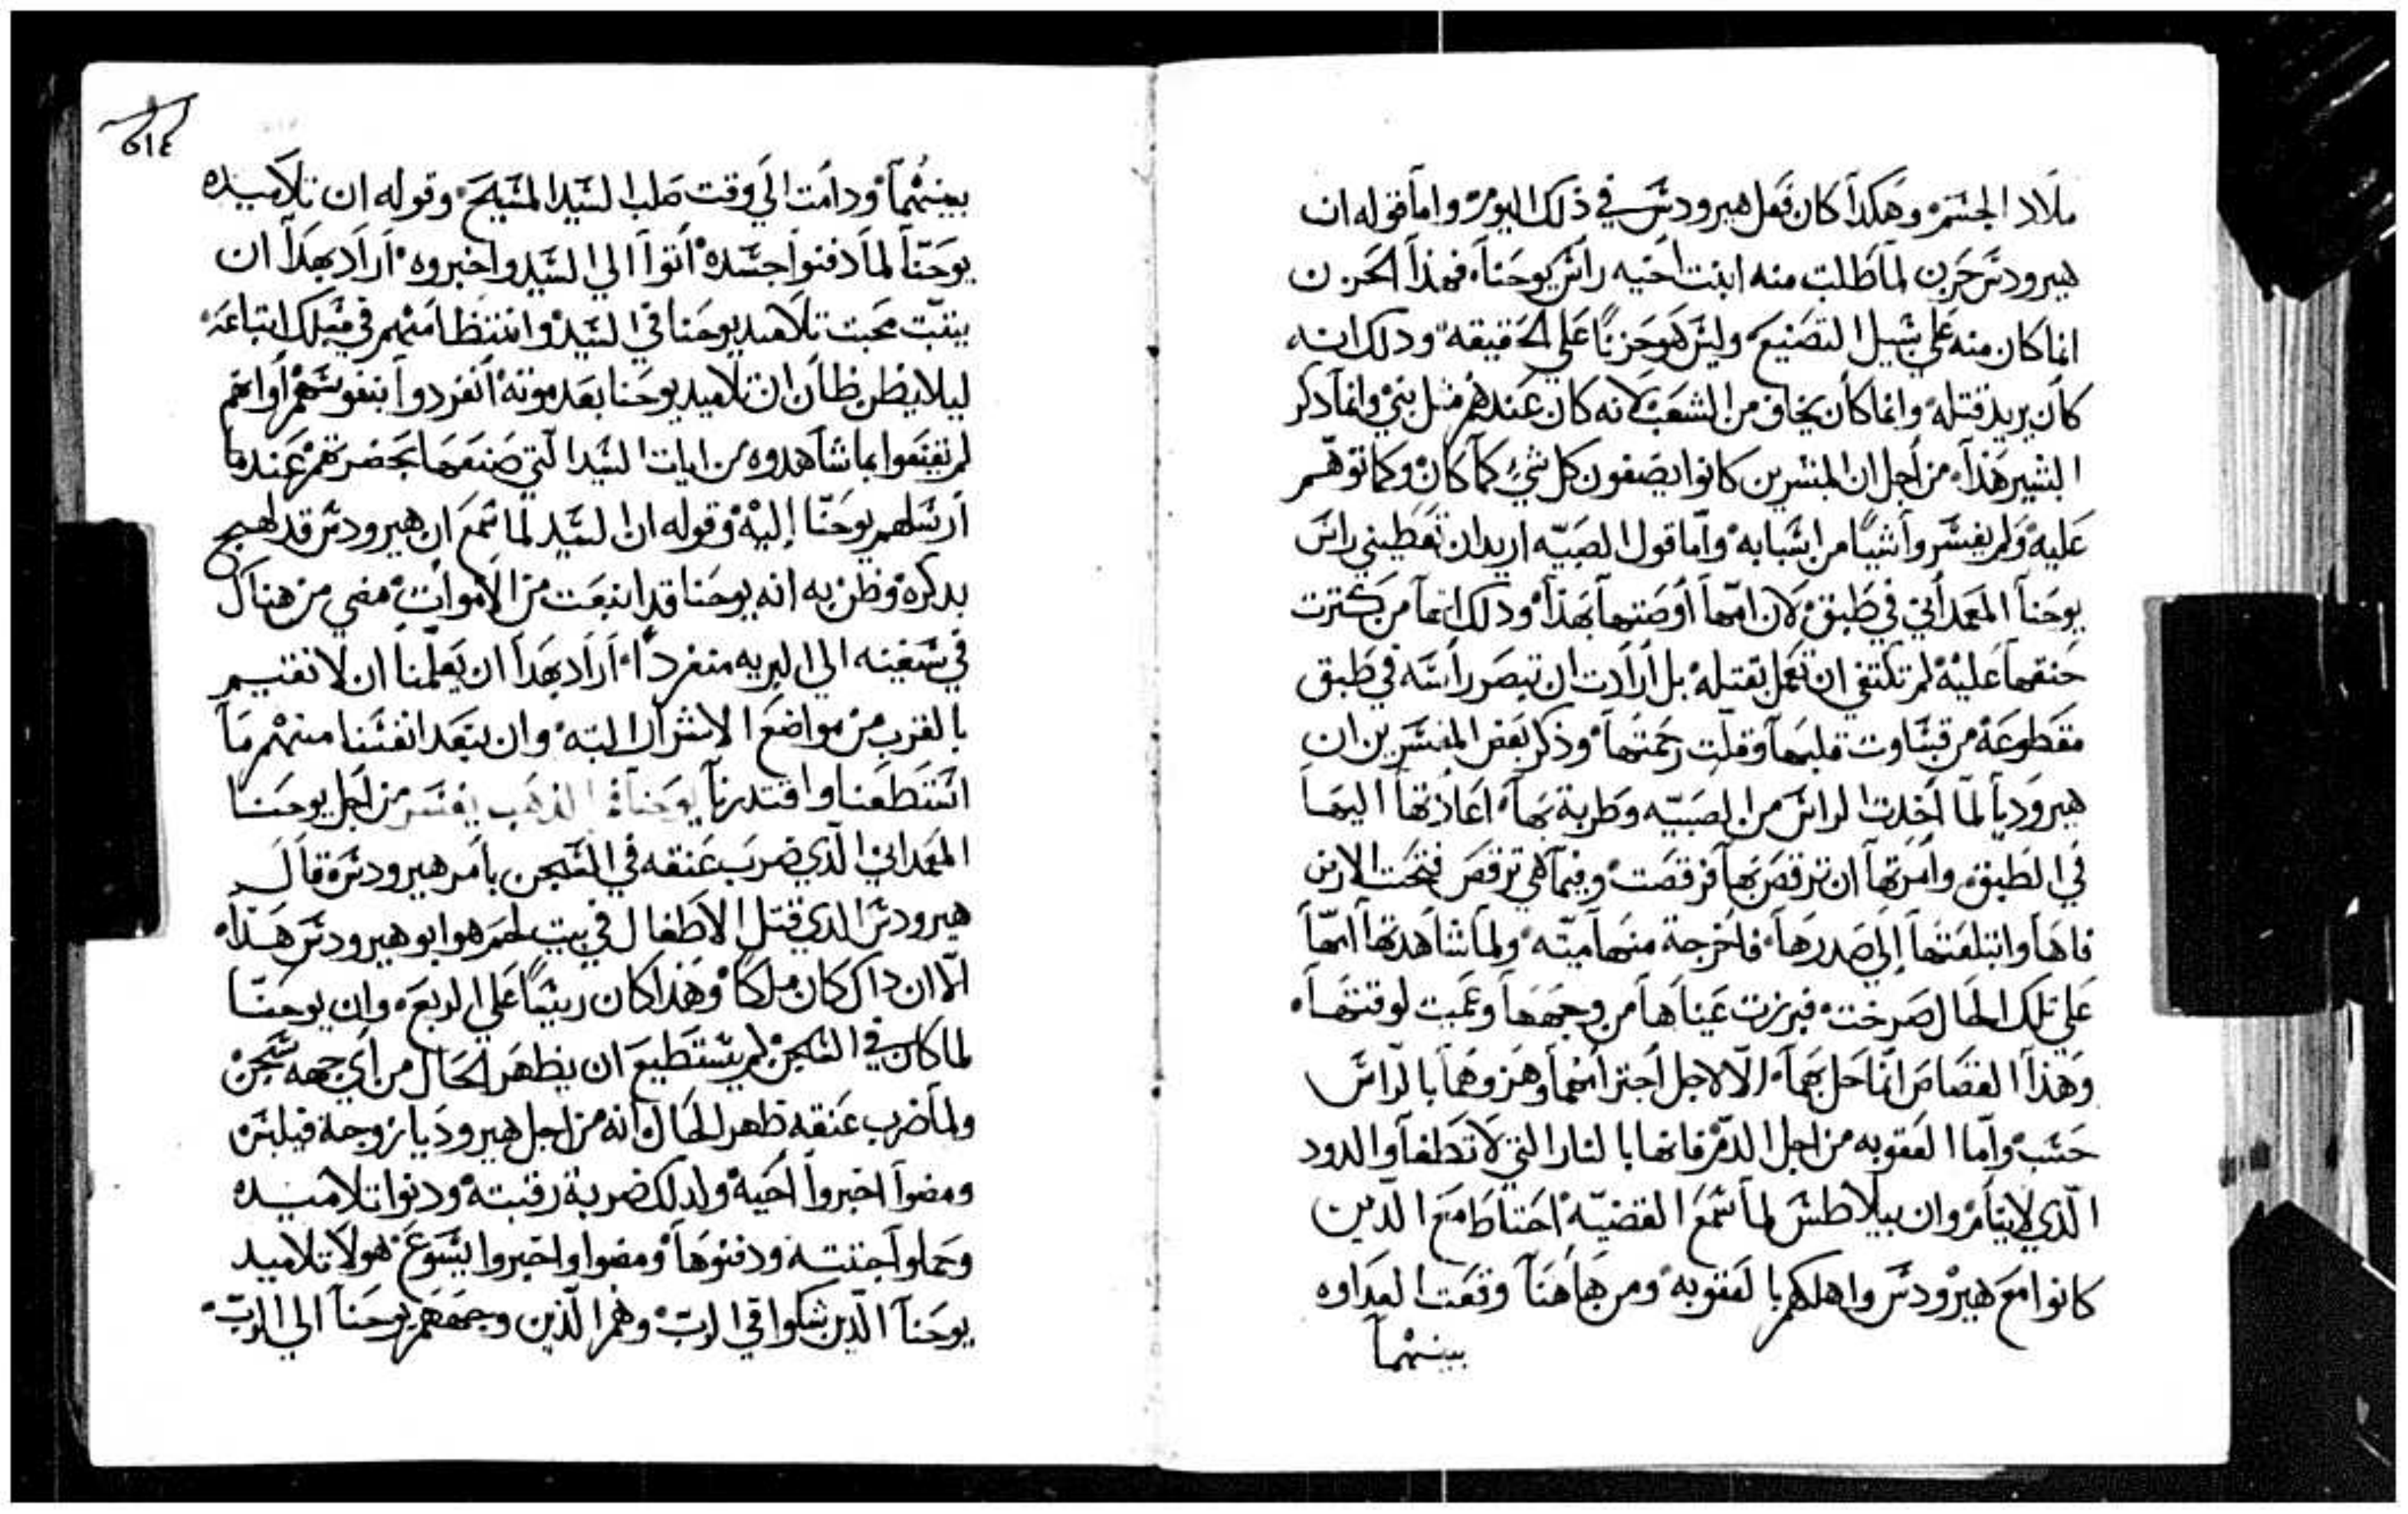 ملاد الجسم وهكذا كان فعل هيرودس في ذلك اليوم واما قوله ان
هيرودس حزن لما طلبت منه ابنت اخيه راس يوحنا فهذا الحزن
انما كان منه علي سبيل التصنيع وليس هو حزنًا علي الحقيقه ودلك انه
كان يريد قتله وانما كان يخاف من الشعب لانه كان عندهم مثل نبي وانما دكر
البشير هذا من اجل ان المبشرين كانوا يصفون كل شي كما كان وكما توهم
عليه ولم يفسروا شيًا من اسبابه واما قول الصبيه اريد ان تعطيني راس
يوحنا المعمداني في طبق لان امها اوصتها بهذا ودلك انها من كترت
حنقها عليه لم تكتفي ان تعمل بقتله بل ارادت ان تبصر راسه في طبق
مقطوعة من قساوت قلبها وقلت رحمتها وذكر بعض المفسرين ان
هيروديا لما اخدت الراس من الصبيه وطربة بها اعادتها اليها
في الطبق وامرتها ان ترقص بها فرقصت وفيما هي ترقص فتحت الارض
فاها وابتلعتها إلي صدرها فاخرجة منها ميته ولما شاهدتها امها
علي تلك الحال صرخت فبرزت عيناها من وجهها وعميت لوقتها
وهذا القصاص انما حل بهما الا لاجل اجترايهما وهزوهما بالراس
حسب واما العقوبه من اجل الدم فانها بالنار التي لا تطفا والدود
الذي لا ينام وان بيلاطس لما سمع القضيه احتاط مع الدين
كانوا مع هيرودس واهلكهم بالعقوبه ومن هاهنا وقعت العداوه
بينهما
٥١٤
بينهما ودامت الي وقت صلب السيد المسيح وقوله ان تلاميده
يوحنا لما دفنوا جسده اتوا الي السيد واخبروه اراد بهدا ان
يتبت محبت تلاميد يوحنا في السيد وانتظامهم في مسلك اتباعه
ليلا يظن ظان ان تلاميد يوحنا بعد موته انفردوا بنفوسهم او انهم
لم يقنعوا بما شاهدوه من ايات السيد التي صنعها بحضرتهم عندما
ارسلهم يوحنا إليه وقوله ان السيد لما سمع ان هيرودس قد لهج
بدكره وظن به انه يوحنا قد انبعت من الاموات مضي من هناك
في سفينه الي البريه منفردًا اراد بهدا ان يعلمنا ان لا نقيم
بالقرب من مواضع الاشرار البته وان نبعد انفسنا منهم ما
استطعنا واقتدرنا يوحنا فم الذهب يفسر من اجل يوحنا
المعمداني الذي ضرب عنقه في السجن بامر هيرودس قال
هيرودس الدي قتل الاطفال في بيت لحم هو ابو هيرودس هذا
الا ان داك كان ملكًا وهذا كان رييسًا علي الربع وان يوحنا
لما كان في السجن لم يستطيع ان يظهر الحال من اي جهه سجن
ولما ضرب عنقه ظهر الحال انه من اجل هيروديا زوجة فيلبس
ومضوا اخبروا اخيه ولدلك ضربة رقبته ودنوا تلاميده
وحملوا جتته ودفنوها ومضوا واخبروا يسوع هولا تلاميد
يوحنا الدين شكوا في الرب وهم الذين وجههم يوحنا الي الرب